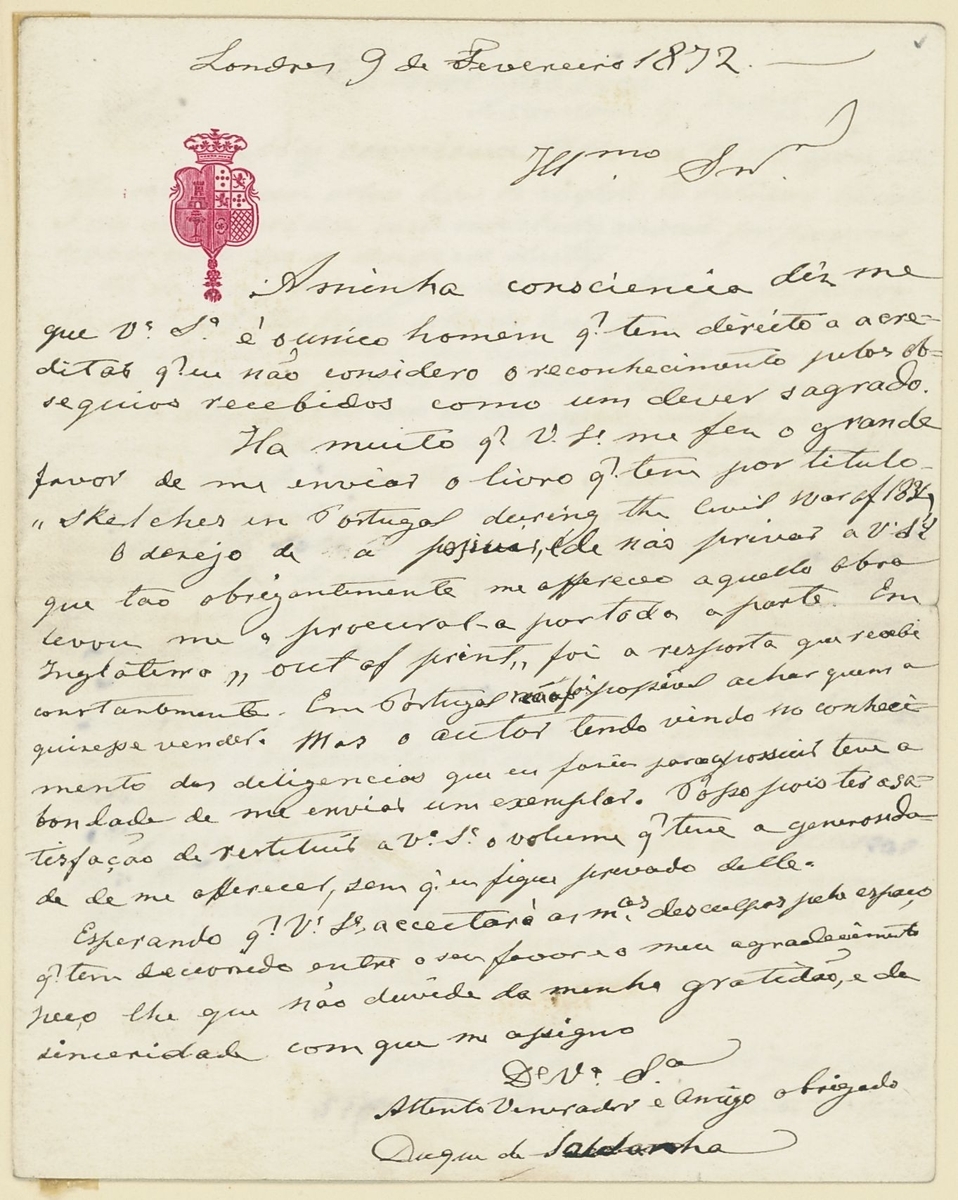 Londres 9 de Fevereiro 1872.
Illmo. Snr.
A minha consciencia diz me
que Vª. Sª. é o unico homem q. tem direito a acre-
ditar q. eu não considero o reconhecimento pelos ob-
sequios recebidos como um dever sagrado.
Ha muito q. V. Sª. me fez o grande
favor de me enviar o livro q. tem por titulo
„ Sketches in Portugal during the Civil War of 1834
O desejo de a possuir, e de não privar a V. Sª
que tão obrigantemente me offereceo aquella obra
levou me a procural-a por toda a parte. Em
Inglaterra „ out of print „ foi a resposta que recebi
constantemente. Em Portugal possivel achar quem a
quizesse vender. Mas o autor tendo vindo no conheci-
mento das diligencias que eu fazia para a possuir teve a
bondade de me enviar um exemplar. Posso pois ter a sa-
tisfação de restituir a Vª. Sª. o volume q. teve a generosida-
de de me offerecer, sem q. eu fique privado delle.
Esperando q. Vª. Sª. acceitará as mªs. desculpas pelo espaço
q. tem decorrido entre o seu favor e o meu agradecimento
peço lhe que não duvide da minha gratidão, e da
sinceridade com que me assigno
De Vª. Sª
Attento Venerador e Amigo obrigado
Duque de Saldanha